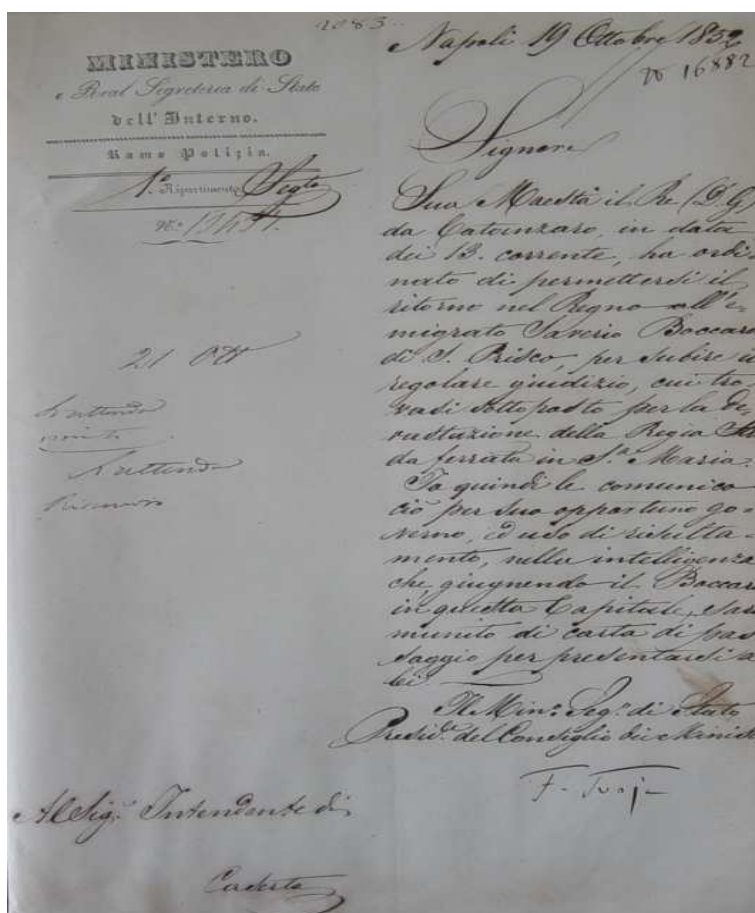 MINISTERO
e Real Segreteria di Stato
dell' Interno.
Ramo Polizia.
1.º Ripartimento Segto
N.º
21 Ott
Napoli 19 Ottobre 1852
16882
Signore
Sua Maestà il Re (D. G.)
da Catanzaro, in data
dei 13. corrente, ha ordi
nato di permettersi il
ritorno nel Regno all'e-
migrato Saverio Boccar
di S. Prisco, per subire i
regolare giudizio, cui tro
vasi sottoposto per la de
vastazione della Regia Str
da ferrata in S.ª Maria.
Io quindi le comunico
ciò per suo opportuno go-
verno, ed uso di risulta-
mento, nella intelligenza
che, giugnendo il Boccar
in questa Capitale, sar
munito di carta di pas
saggio per presentarsi a
lei.
Il Min.º Seg.º di Stato
Presid.e del Consiglio dei Minist
Al Sig.r Intendente di
Caserta